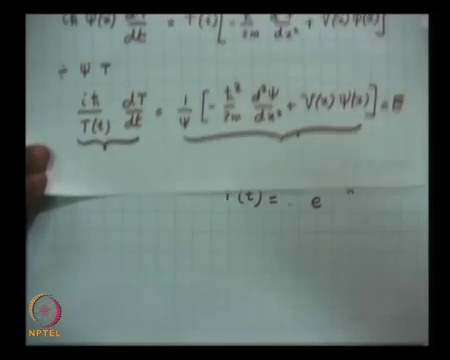 iħ Ψ(x) dT/dt = T(t) [ - ħ²/2m d²Ψ/dx² + V(x) Ψ(x) ]
÷ Ψ T
iħ/T(t) dT/dt = 1/Ψ [ - ħ²/2m d²Ψ/dx² + V(x) Ψ(x) ] = E
T(t) = e
NPTEL